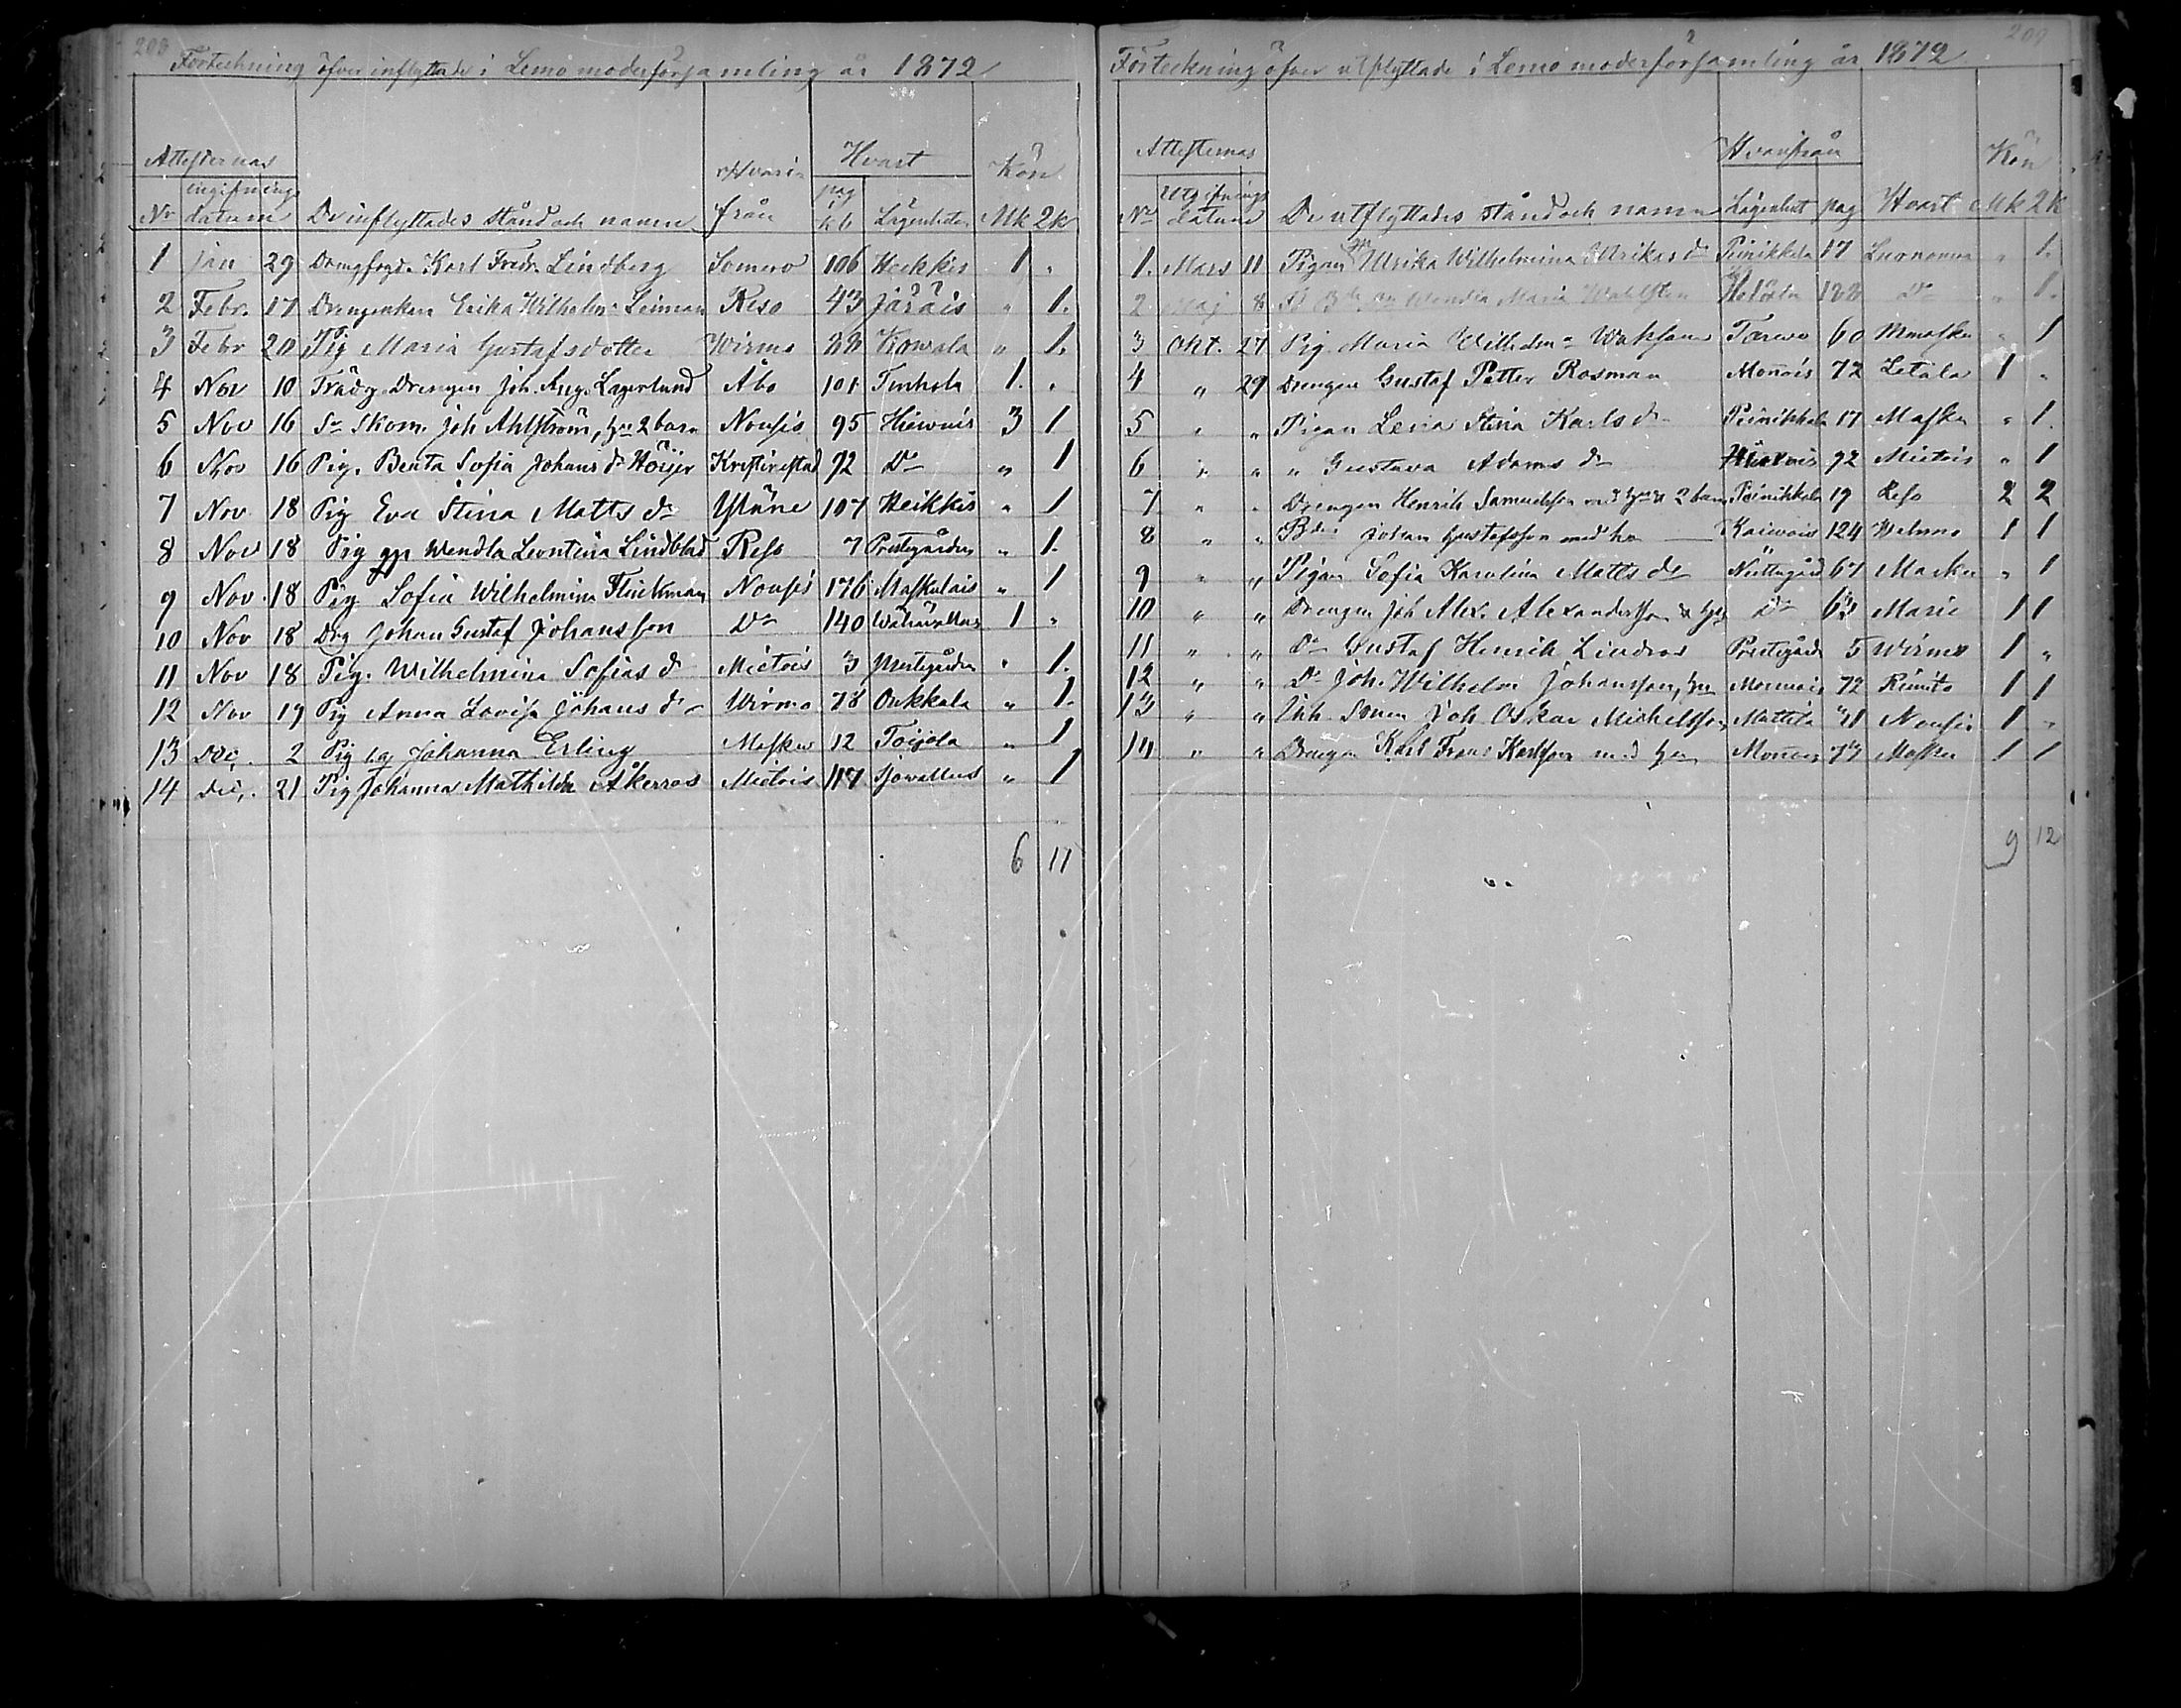 208
Förteckning öfver inflyttade i Lemo moderförsamling år 1872
Attesternas Hvart Kön
Nr ingifnings datum De inflyttades stånd och namn Hvarifrån pag i kb Lägenheten Mk Qk
1 Jan 29 Drengfogd. Karl Fredr. Lindberg Somero 106 Heikkis 1 "
2 Febr. 17 Drengenkan Erika Wilhelm: Leinman Reso 43 Järäis " 1.
3 Febr 20 Pig Maria Gustafsdotter Wirmo 88 Kowala " 1.
4 Nov 10 Trädg. Drengen Joh. Aug. Lagerlund Åbo 101 Tinhola 1. "
5 Nov 16 Sn Skom. Joh Ahlström, hu 2 barn Nousis 95 Hiewais 3 1
6 Nov 16 Pig. Benta Sofia Johans dr Höijer Kristinestad 92 Do " 1
7 Nov 18 Pig Eva Stina Matts dr Yläne 107 Heikkis " 1
8 Nov 18 Pig Wendla Leontina Lindblad Reso 7 Prestgården " 1.
9 Nov. 18 Pig Sofia Wilhelmina Flinkman Nousis 176 Maskulais " 1
10 Nov 18 Drg Johan Gustaf Johansson Do 140 1 "
11 Nov 18 Pig. Wilhelmina Sofias dr Mietois 3 Prestgården " 1.
12 Nov 19 Pig Anna Lovisa Johans dr Wirmo 78 Onkkala " 1.
13 Dec. 2 Pig Johanna Erling Masku 12 Toijola " 1
14 Dec. 21 Pig Johanna Mathilda Åkerros Mietois 117 Sjöwallus " 1
6 11
209
Förteckning öfver utflyttade i Lemo moderförsamling år 1872
Attesternas Hvarifrån Kön
Nr Utgifnings datum De utflyttades stånd och namn Lägenhet pag Hvart Mk Qk
1. Mars 11 Pigan Ulrika Wilhelmina Ulrikas dr Peinikkala 17 " 1.
2 Maj 8 Wendla Maria Wahlsten 188 Do " 1.
3 Okt. 27 Pig. Maria Wilhelm: Tarwo 60 Masku " 1
4 " 29 Drengen Gustaf Petter Rosman Monnois 72 Letala 1 "
5 " " Pigan Lena Stina Karls dr Peinikkala 17 Masku " 1.
6 " " " Gustava Adams dr Hiewais 92 Mietois " 1
7 " " Drengen Henrik Samuelsson med hu & 2 barn Peinikkala 19 Reso 2 2
8 " " Johan Gustafsson med hu Kaiwois 124 Wehmo 1 1
9 " " Pigan Sofia Karolina Matts dr 67 Masku " 1
10 " " Drengen Joh Alex. Alexandersson & hu Do 63 Marie 1 1
11 " " Do Gustaf Henrik Lindros Prestgård 5 Wirmo 1 "
12 " " Do Joh. Wilhelm Johansson, hu Monnois 72 Rimito 1 1
13 " " Inh. Sonen Joh Oskar Michelsson Mattila 31 Nousis 1 "
14 " " Drengen Karl Frans Karlsson med hu Monnois 77 Masku 1 1
9 12